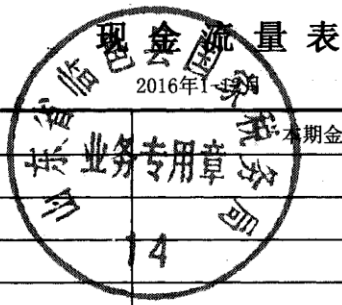 现金流量表
2016年1-12月
本期金
山东省临邑县国家税务局
业务专用章
14